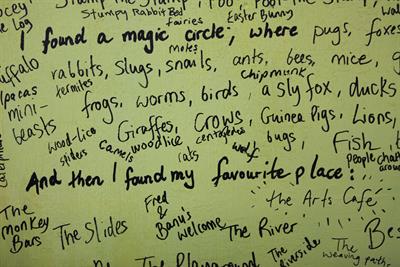 ocey
the log
Stump
Stumpy Rabbit Bed
fairies
Easter Bunny
I found a magic circle; where pugs, foxes
moles
buffalo
rabbits, slugs, snails, ants, bees, mice, g
termites
chipmunk
alpacas
mini-
beasts
frogs, worms, birds, a sly fox, ducks
Giraffes, Crows, Guinea Pigs, Lions,
wood-lice
sliders
Camels
woodlice
centapedes
bugs, Fish
rats
wolf
people chatt
around
And then I found my favourite place:
the Arts Café
The
Monkey
Bars
The Slides
Fred
&
Banu's
welcome
The River
Bes
The Playground
The
Riverside
The
weaving path